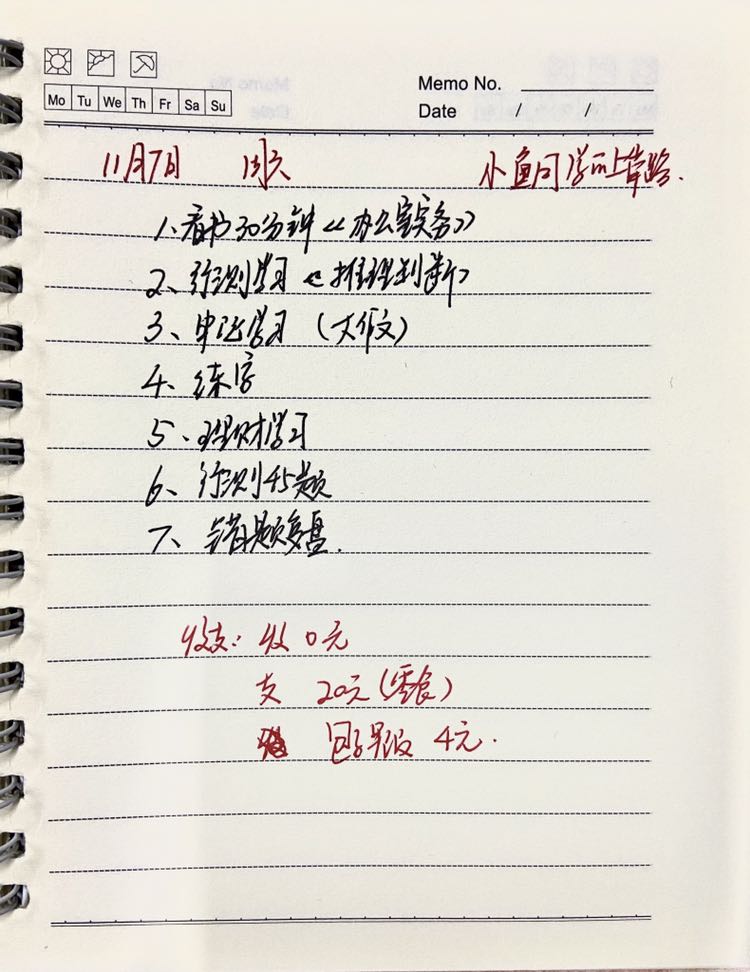 Memo No.
Mo Tu We Th Fr Sa Su
Date / /
11月7日 周六 小鱼同学的上岸路.
1、看书30分钟《办公室实务》
2、行测学习《推理判断》
3、申论学习(大作文)
4、练字
5、理财学习
6、行测45题
7、错题复盘.
收支: 收 0元
支 20元(零食)
包子早饭 4元.